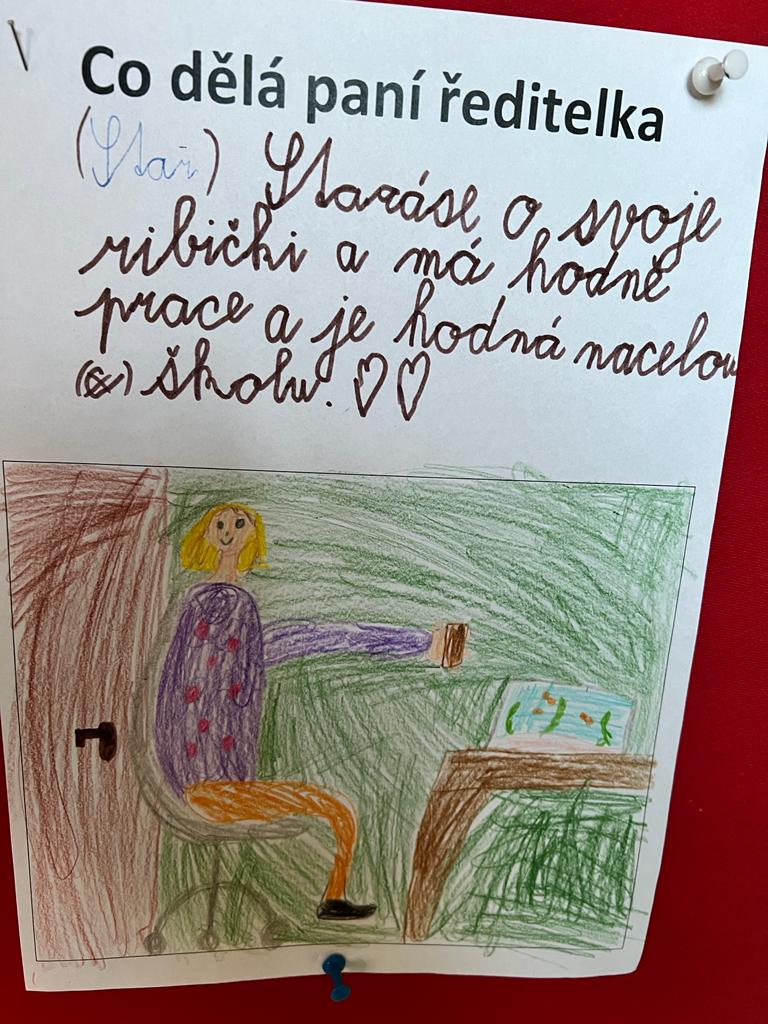 Co dělá paní ředitelka
(Star) Staráse o svoje
ribički a má hodně
prace a je hodná nacelou
školu.